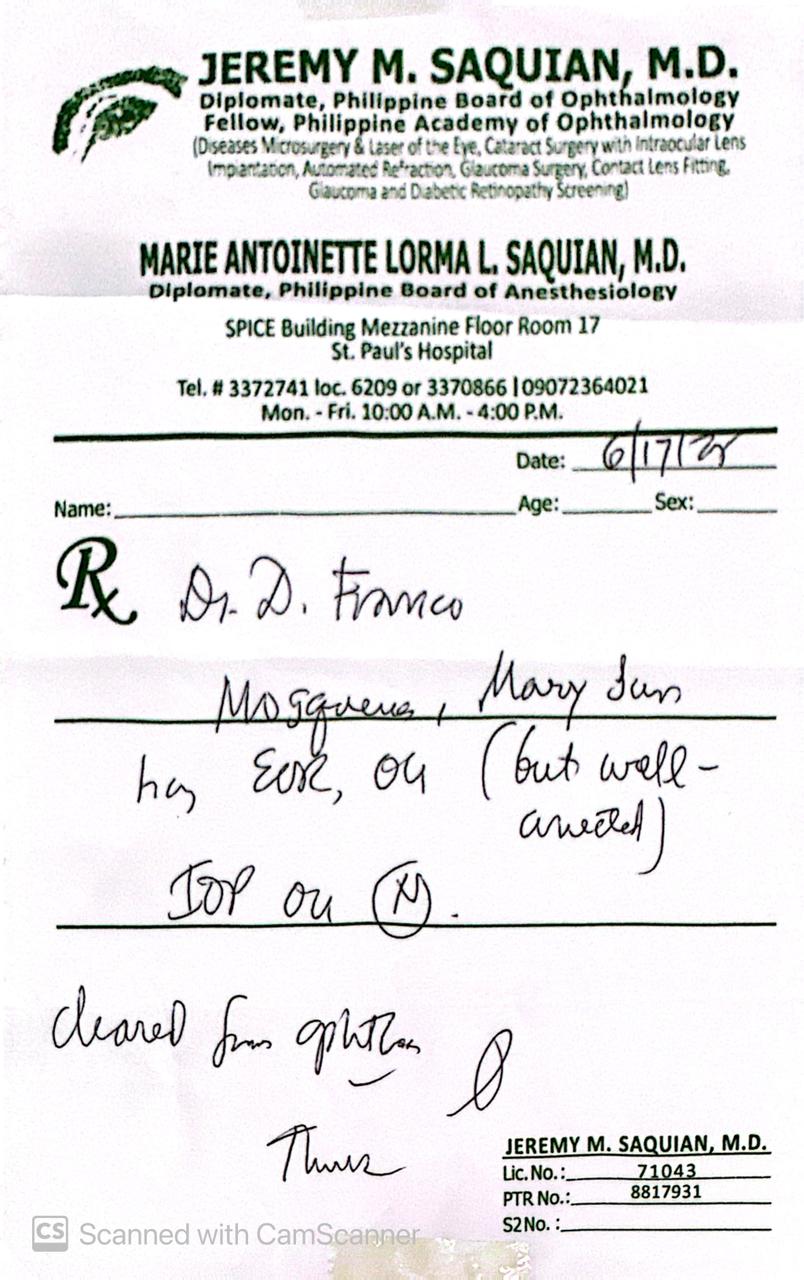 JEREMY M. SAQUIAN, M.D.
Diplomate, Philippine Board of Ophthalmology
Fellow, Philippine Academy of Ophthalmology
(Diseases Microsurgery & Laser of the Eye, Cataract Surgery with Intraocular Lens
Implantation, Automated Refraction, Glaucoma Surgery, Contact Lens Fitting,
Glaucoma and Diabetic Retinopathy Screening)
MARIE ANTOINETTE LORMA L. SAQUIAN, M.D.
Diplomate, Philippine Board of Anesthesiology
SPICE Building Mezzanine Floor Room 17
St. Paul's Hospital
Tel. # 3372741 loc. 6209 or 3370866 | 09072364021
Mon. - Fri. 10:00 A.M. - 4:00 P.M.
Date: 6/17/
Name: Age: Sex:
Rx Dr. D. Franco
Mary
has EOR, OU (but well-
IOP OU (N).
cleared from
JEREMY M. SAQUIAN, M.D.
Lic. No.: 71043
PTR No.: 8817931
S2 No. :
CS Scanned with CamScanner